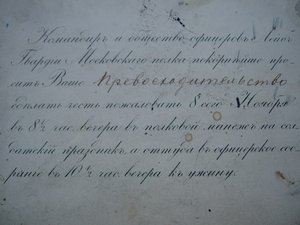 Командиръ и общество офицеровъ Лейбъ
Гвардiи Московскаго полка покорнѣйше про-
ситъ Ваше Превосходительство
сдѣлать честь пожаловать 8 сего Ноября
въ 8½ час. вечера въ полковой манежъ на сол-
датскiй праздникъ а оттуда въ офицерское со-
бранiе въ 10½ час. вечера къ ужину.